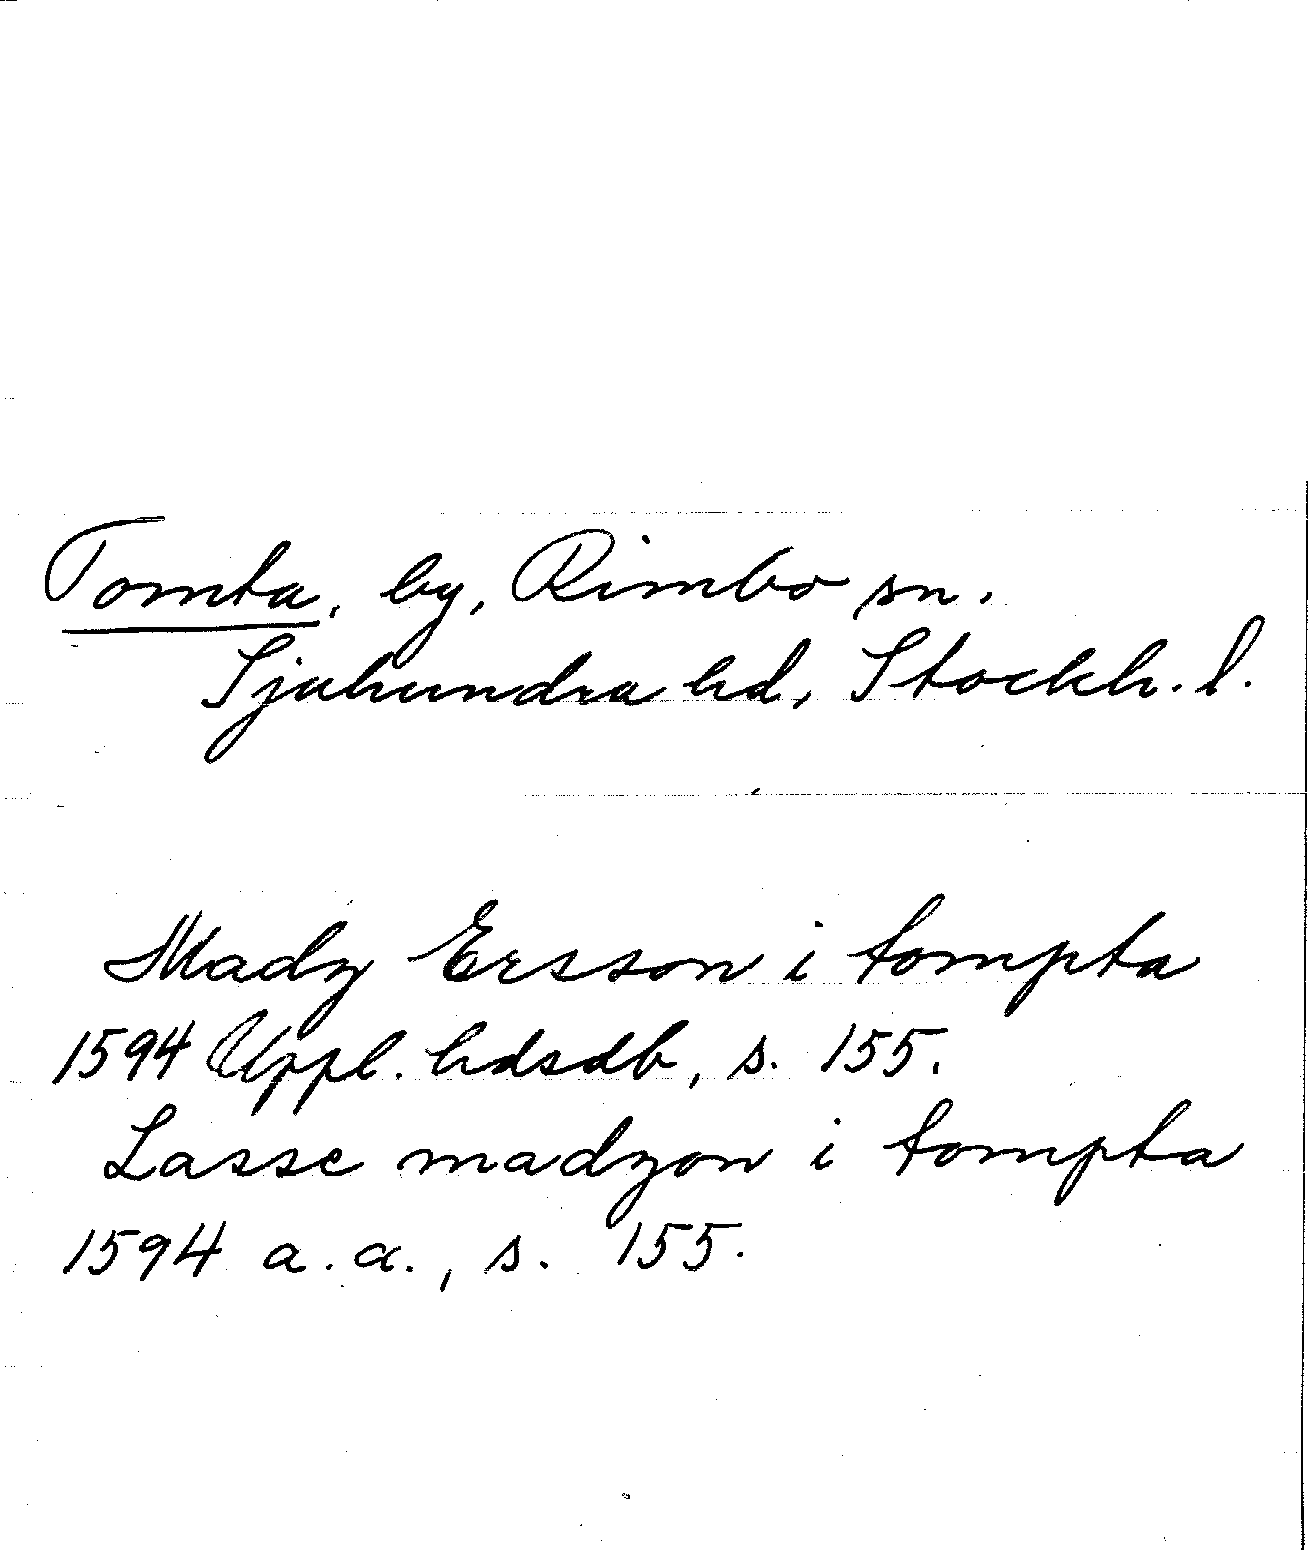 Tomta, by, Rimbo sn.
Sjuhundra hd, Stockh. l.
Madz Ersson i tompta
1594 Uppl. hdsdb, s. 155.
Lasse madzon i tompta
1594 a.a., s. 155.